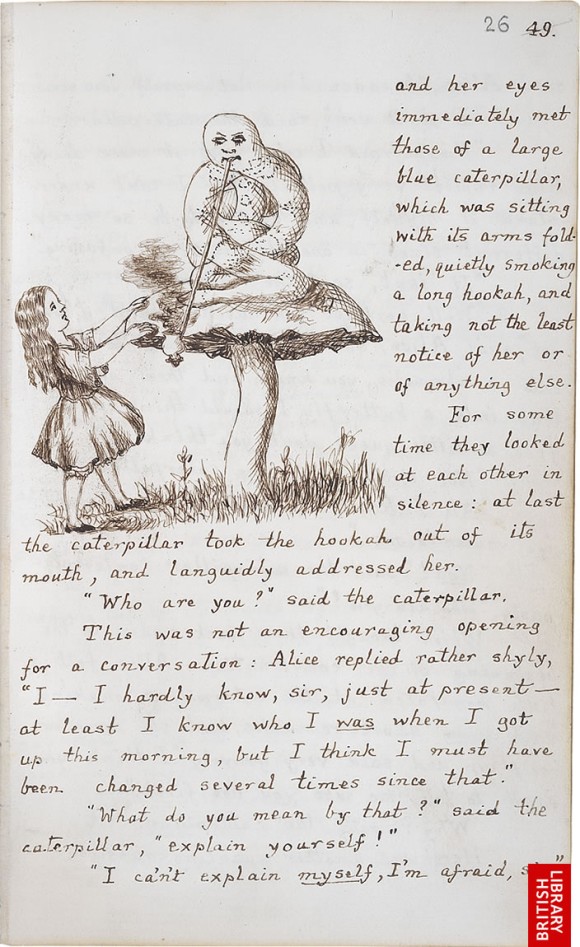 26 49.
and her eyes
immediately met
those of a large
blue caterpillar,
which was sitting
with its arms fold-
-ed, quietly smoking
a long hookah, and
taking not the least
notice of her or
of anything else.
For some
time they looked
at each other in
silence : at last
the caterpillar took the hookah out of its
mouth, and languidly addressed her.
"Who are you?" said the caterpillar.
This was not an encouraging opening
for a conversation : Alice replied rather shyly,
"I — I hardly know, sir, just at present —
at least I know who I was when I got
up this morning, but I think I must have
been changed several times since that."
"What do you mean by that?" said the
caterpillar, "explain yourself!"
"I can't explain myself, I'm afraid,
BRITISH
LIBRARY